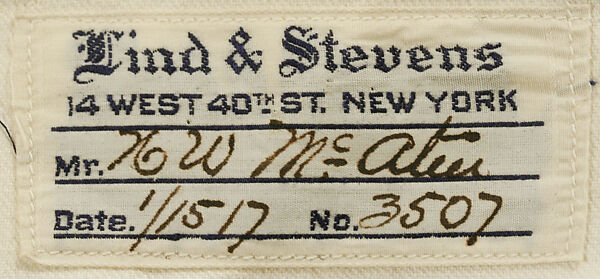 Lind & Stevens
14 WEST 40TH ST. NEW YORK
Mr. H W McAteer
Date. 1/15 17 No. 3507